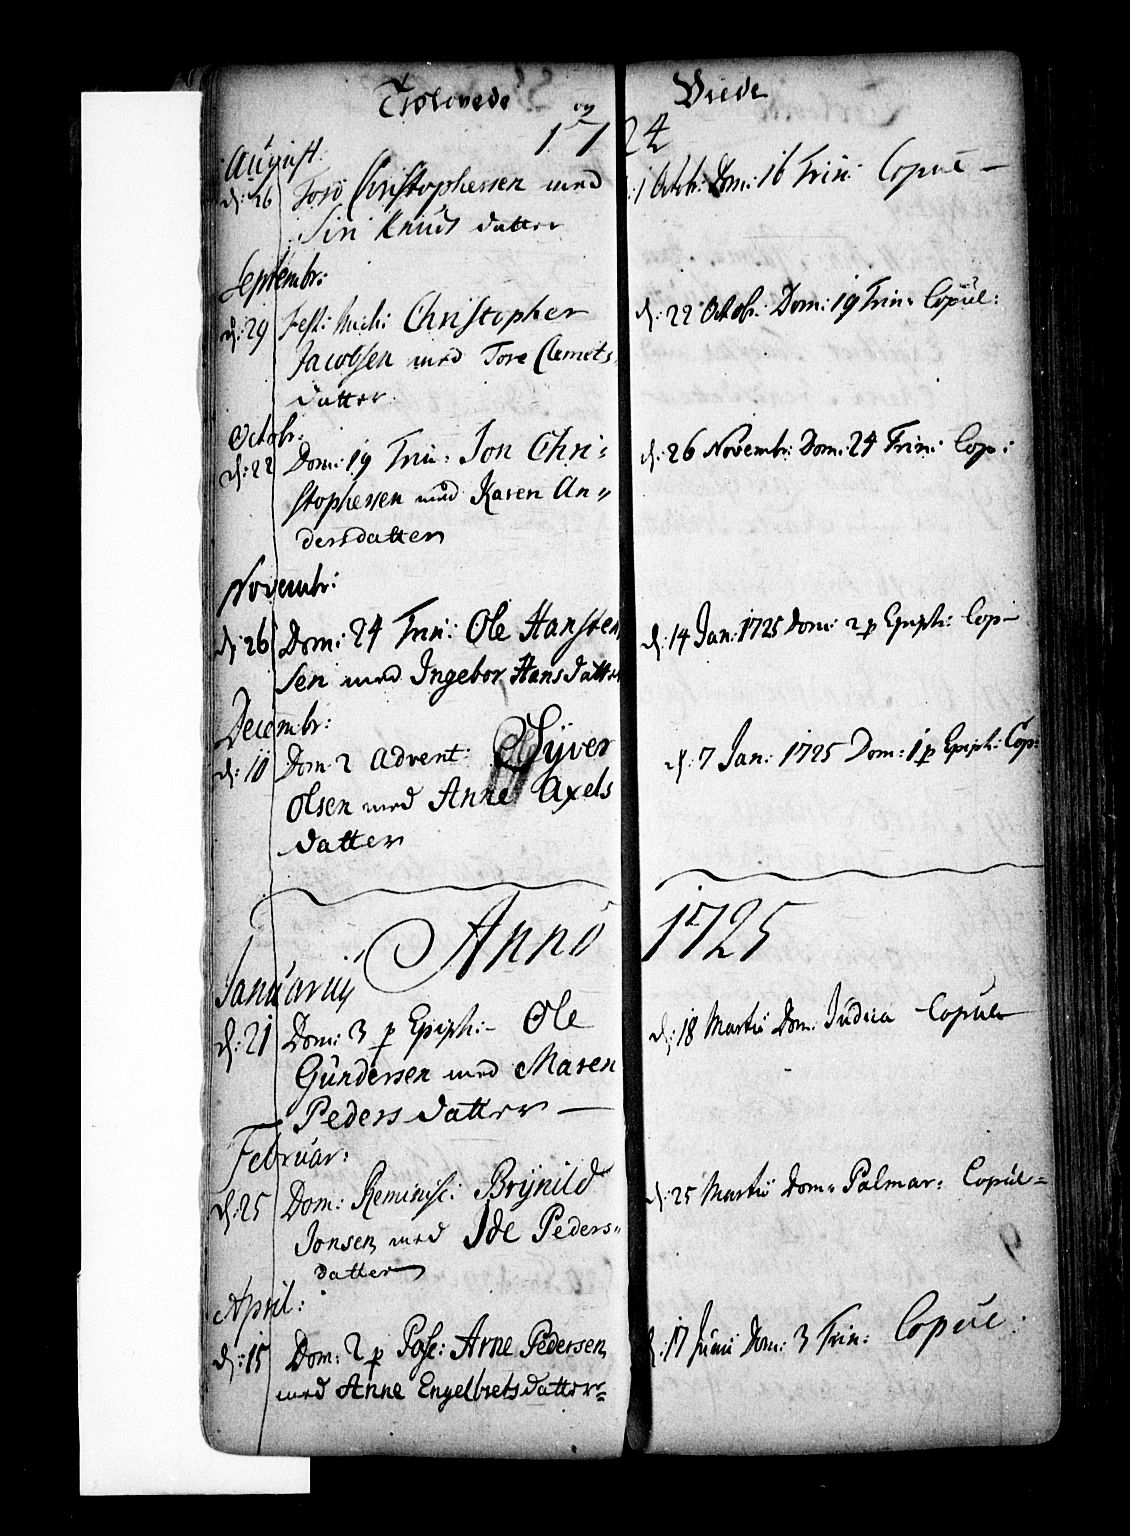 Trolovede og Viede
1724
August:
d: 26 Tord Christophersen med
Siri Knuds datter
d: 1 Octob: Dom: 16 Trin: Copul —
Septembr:
d: 29 Fest: Mich: Christopher
Jacobsen med Tore Clemets
datter
d: 22 Octobr: Dom: 19 Trin: Copul:
Octobr:
d: 22 Dom: 19 Trin: Jon Chri=
stophersen med Karen An=
dersdatter
d: 26 Novembr: Dom: 24 Trin: Cop:
Novembr:
d: 26 Dom: 24 Trin: Ole Hansten
sen med Ingebor Hansdatter
d: 14 Jan: 1725 Dom: 2 p Epiph: Cop—
Decembr:
d: 10 Dom 2 Advent: Syver
Olsen med Anne Axels
datter
d: 7 Jan: 1725 Dom: 1 p Epiph: Cop:
Anno 1725
Januarij
d: 21 Dom: 3 p Epiph:- Ole
Gundersen med Maren
Peders datter —
d: 18 Martii Dom: Judica Copul
Februar:
d: 25 Dom: Reminisc: Brynild
Jonsen med Ide Peders=
datter
d: 25 Martii Dom: Palmar: Copul=
April:
d: 15 Dom: 2 p Pasc: Arne Pedersen
med Anne Engelbretsdatter=
d: 17 Junii Dom: 3 Trin: Copul: